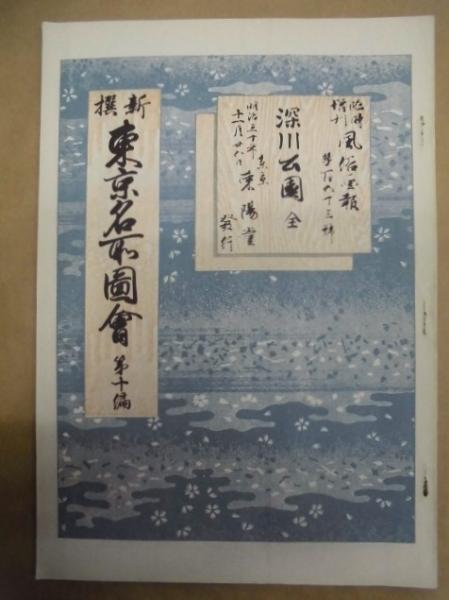 臨時
増刊
風俗画報
第百五十三號
深川公園 全
明治三十年
十一月廿五日
東京
東陽堂
發行
新撰
東京名所圖會
第十編